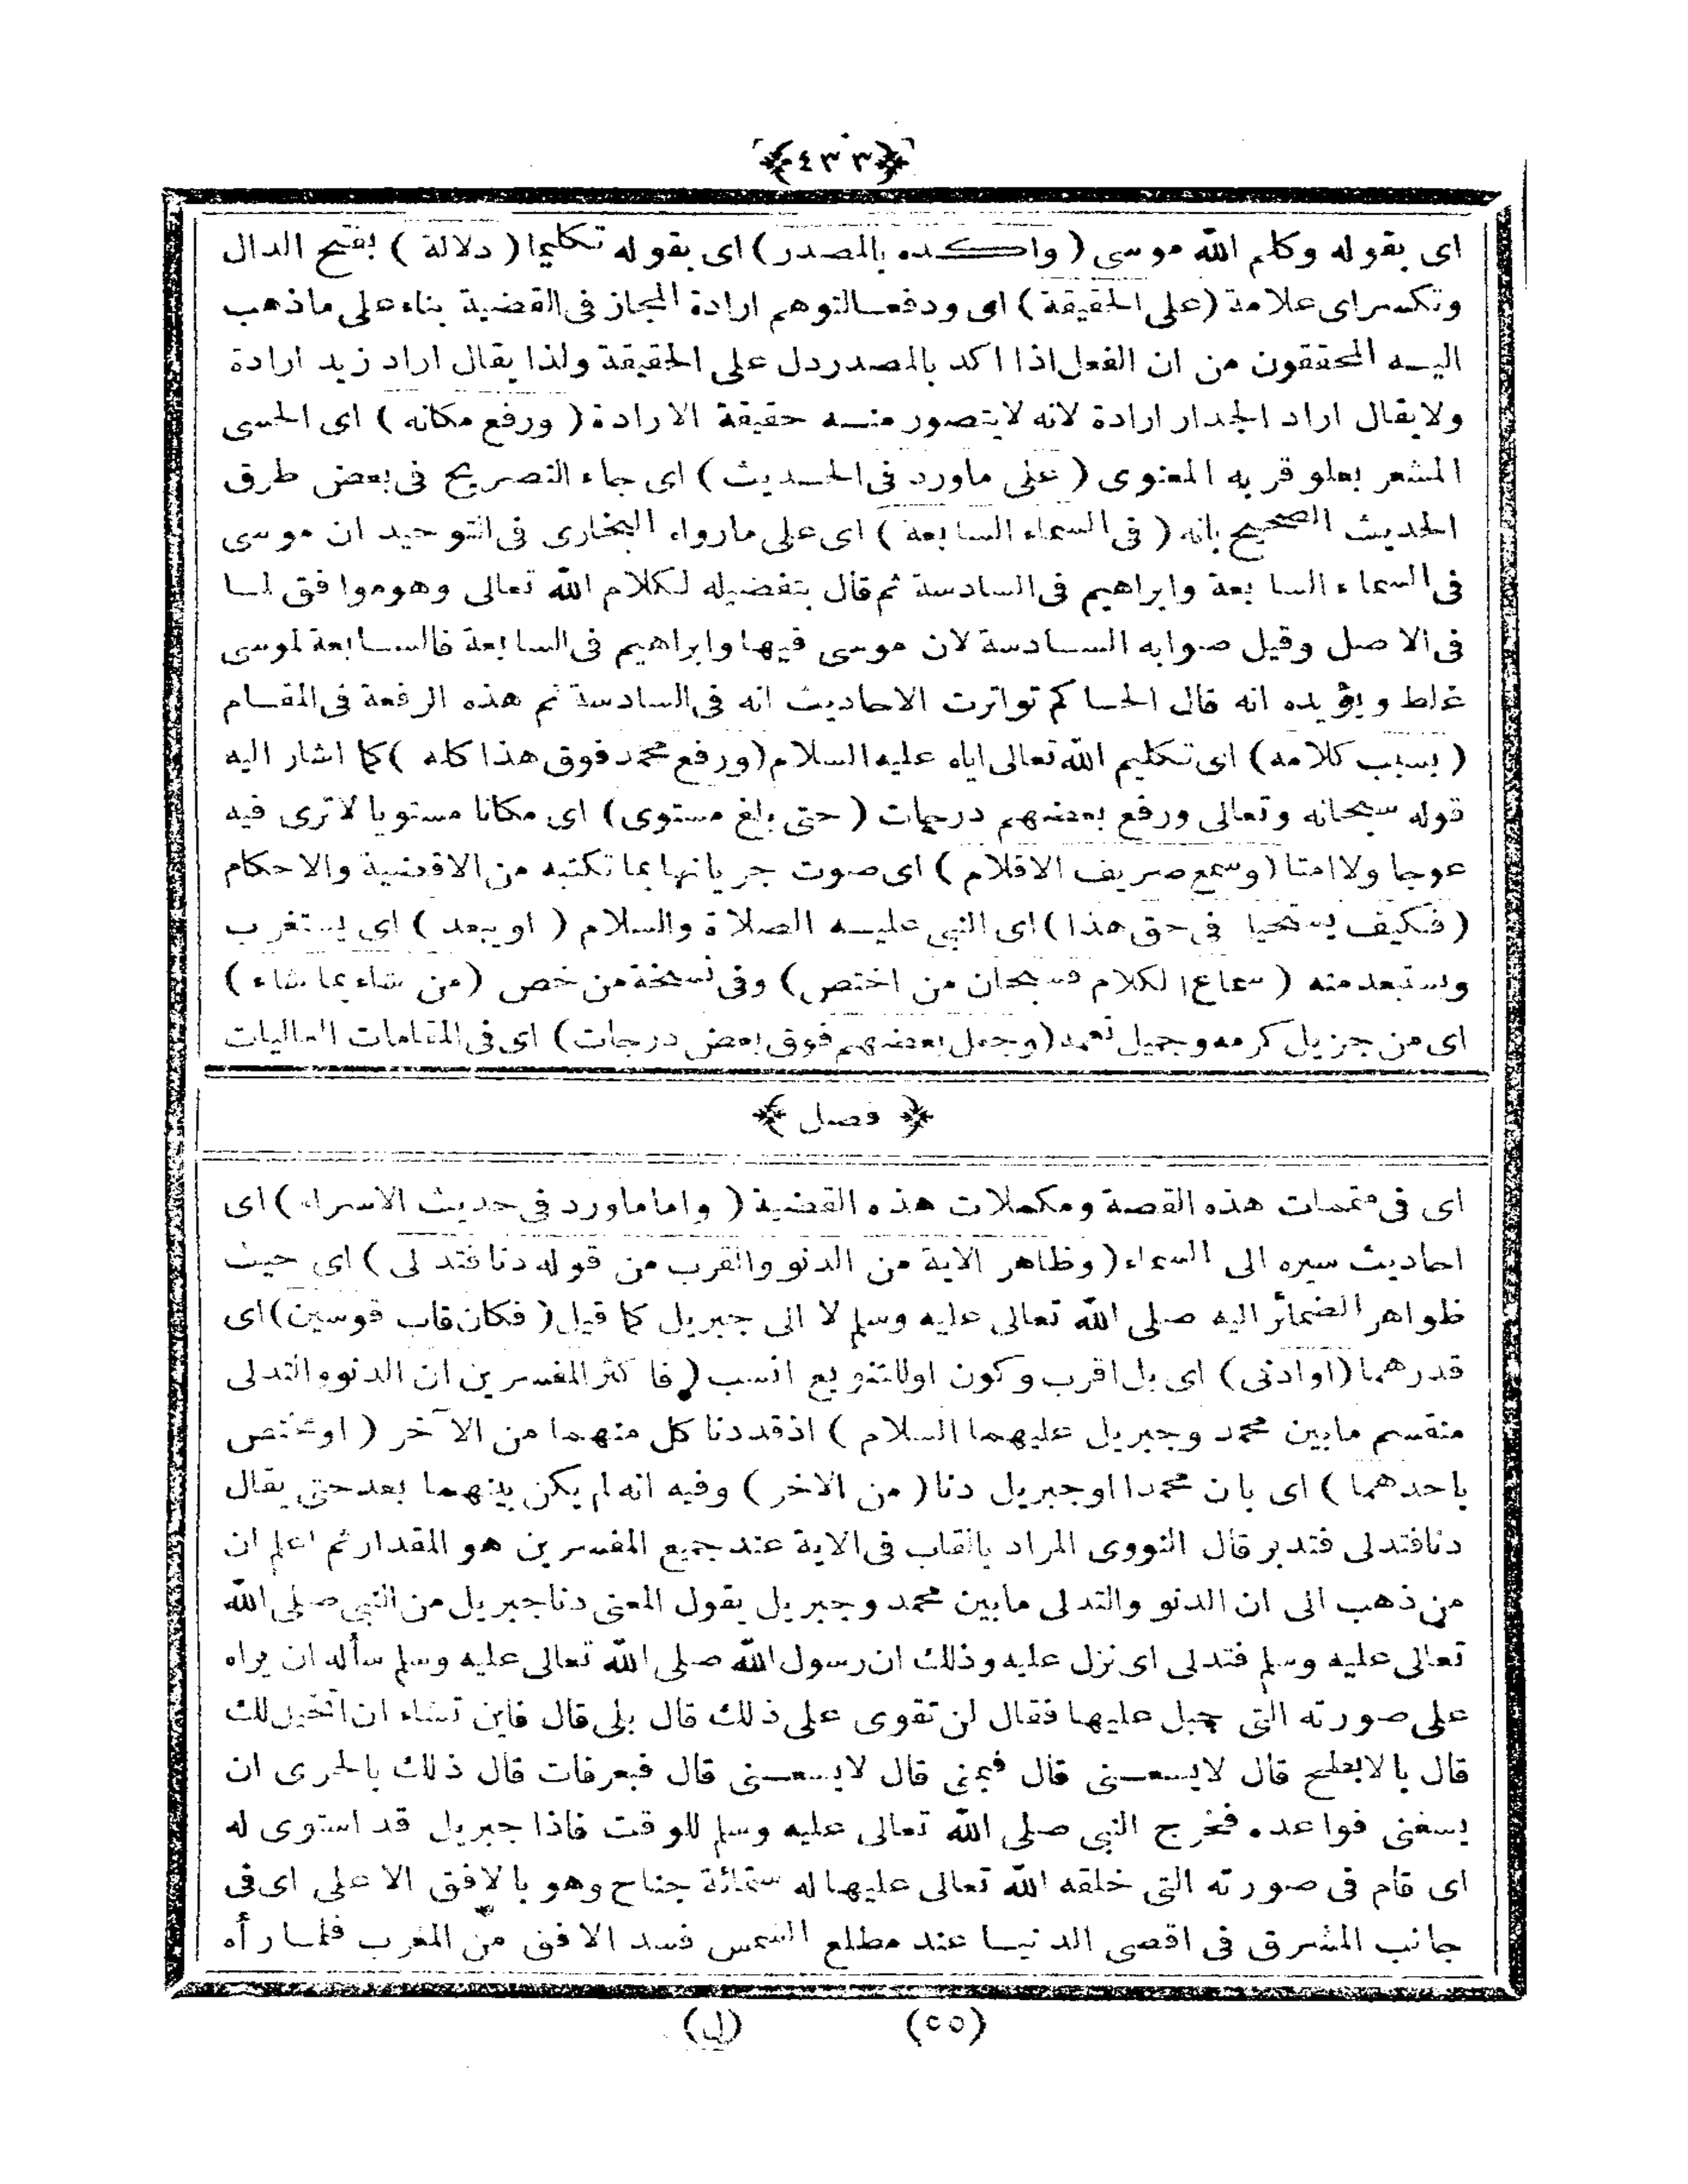 ﴿٤٣٣﴾
اى بقوله وكلم الله موسى ( واكده بالمصدر ) اى بقوله تكليما ( دلالة ) بفتح الدال
وتكسر اى علامة ( على الحقيقة ) اى ودفعا لتوهم ارادة المجاز فى القضية بناء على ماذهب
اليه المحققون من ان الفعل اذا اكد بالمصدر دل على الحقيقة ولذا يقال اراد زيد ارادة
ولا يقال اراد الجدار ارادة لانه لا يتصور منه حقيقة الارادة ( ورفع مكانه ) اى الحسى
المشعر بعلو قربه المعنوى ( على ماورد فى الحديث ) اى جاء التصريح فى بعض طرق
الحديث الصحيح بانه ( فى السماء السابعة ) اى على مارواه البخارى فى التوحيد ان موسى
فى السماء السابعة وابراهيم فى السادسة ثم قال بتفضيله لكلام الله تعالى وهو موافق لما
فى الاصل وقيل صوابه السادسة لان موسى فيها وابراهيم فى السابعة فالسابعة لموسى
غلط ويؤيده انه قال الحاكم تواترت الاحاديث انه فى السادسة ثم هذه الرفعة فى المقام
( بسبب كلامه ) اى تكليم الله تعالى اياه عليه السلام ( ورفع محمد فوق هذا كله ) كما اشار اليه
قوله سبحانه وتعالى ورفع بعضهم درجات ( حتى بلغ مستوى ) اى مكانا مستويا لا ترى فيه
عوجا ولا امتا ( وسمع صريف الاقلام ) اى صوت جريانها بما تكتبه من الاقضية والاحكام
( فكيف يستحيا فى حق هذا ) اى النبى عليه الصلاة والسلام ( او يبعد ) اى يستغرب
ويستبعد منه ( سماع الكلام فسبحان من اختص ) وفى نسخة من خص ( من شاء بما شاء )
اى من جزيل كرمه وجميل نعمه ( وجعل بعضهم فوق بعض درجات ) اى فى المقامات العاليات
﴿ فصل ﴾
اى فى متممات هذه القصة ومكملات هذه القضية ( واما ماورد فى حديث الاسراء ) اى
احاديث سيره الى السماء ( وظاهر الاية من الدنو والقرب من قوله دنا فتدلى ) اى حيث
ظواهر الضمائر اليه صلى الله تعالى عليه وسلم لا الى جبريل كما قيل ( فكان قاب قوسين ) اى
قدرهما ( او ادنى ) اى بل اقرب وكون او للتنويع انسب ( فاكثر المفسرين ان الدنو والتدلى
منقسم مابين محمد وجبريل عليهما السلام ) اذ قد دنا كل منهما من الآخر ( او مختص
باحدهما ) اى بان محمدا او جبريل دنا ( من الاخر ) وفيه انه لم يكن بينهما بعد حتى يقال
دنا فتدلى فتدبر قال النووى المراد بالقاب فى الاية عند جميع المفسرين هو المقدار ثم اعلم ان
من ذهب الى ان الدنو والتدلى مابين محمد وجبريل يقول المعنى دنا جبريل من النبى صلى الله
تعالى عليه وسلم فتدلى اى نزل عليه وذلك ان رسول الله صلى الله تعالى عليه وسلم سأله ان يراه
على صورته التى جبل عليها فقال لن تقوى على ذلك قال بلى قال فاين تشاء ان اتخيل لك
قال بالابطح قال لا يسعنى قال فبمنى قال لا يسعنى قال فبعرفات قال ذلك بالحرى ان
يسعنى فواعده فخرج النبى صلى الله تعالى عليه وسلم للوقت فاذا جبريل قد استوى له
اى قام فى صورته التى خلقه الله تعالى عليها له ستمائة جناح وهو بالافق الاعلى اى فى
جانب المشرق فى اقصى الدنيا عند مطلع الشمس فسد الافق من المغرب فلما رأه
(٥٥) (ل)